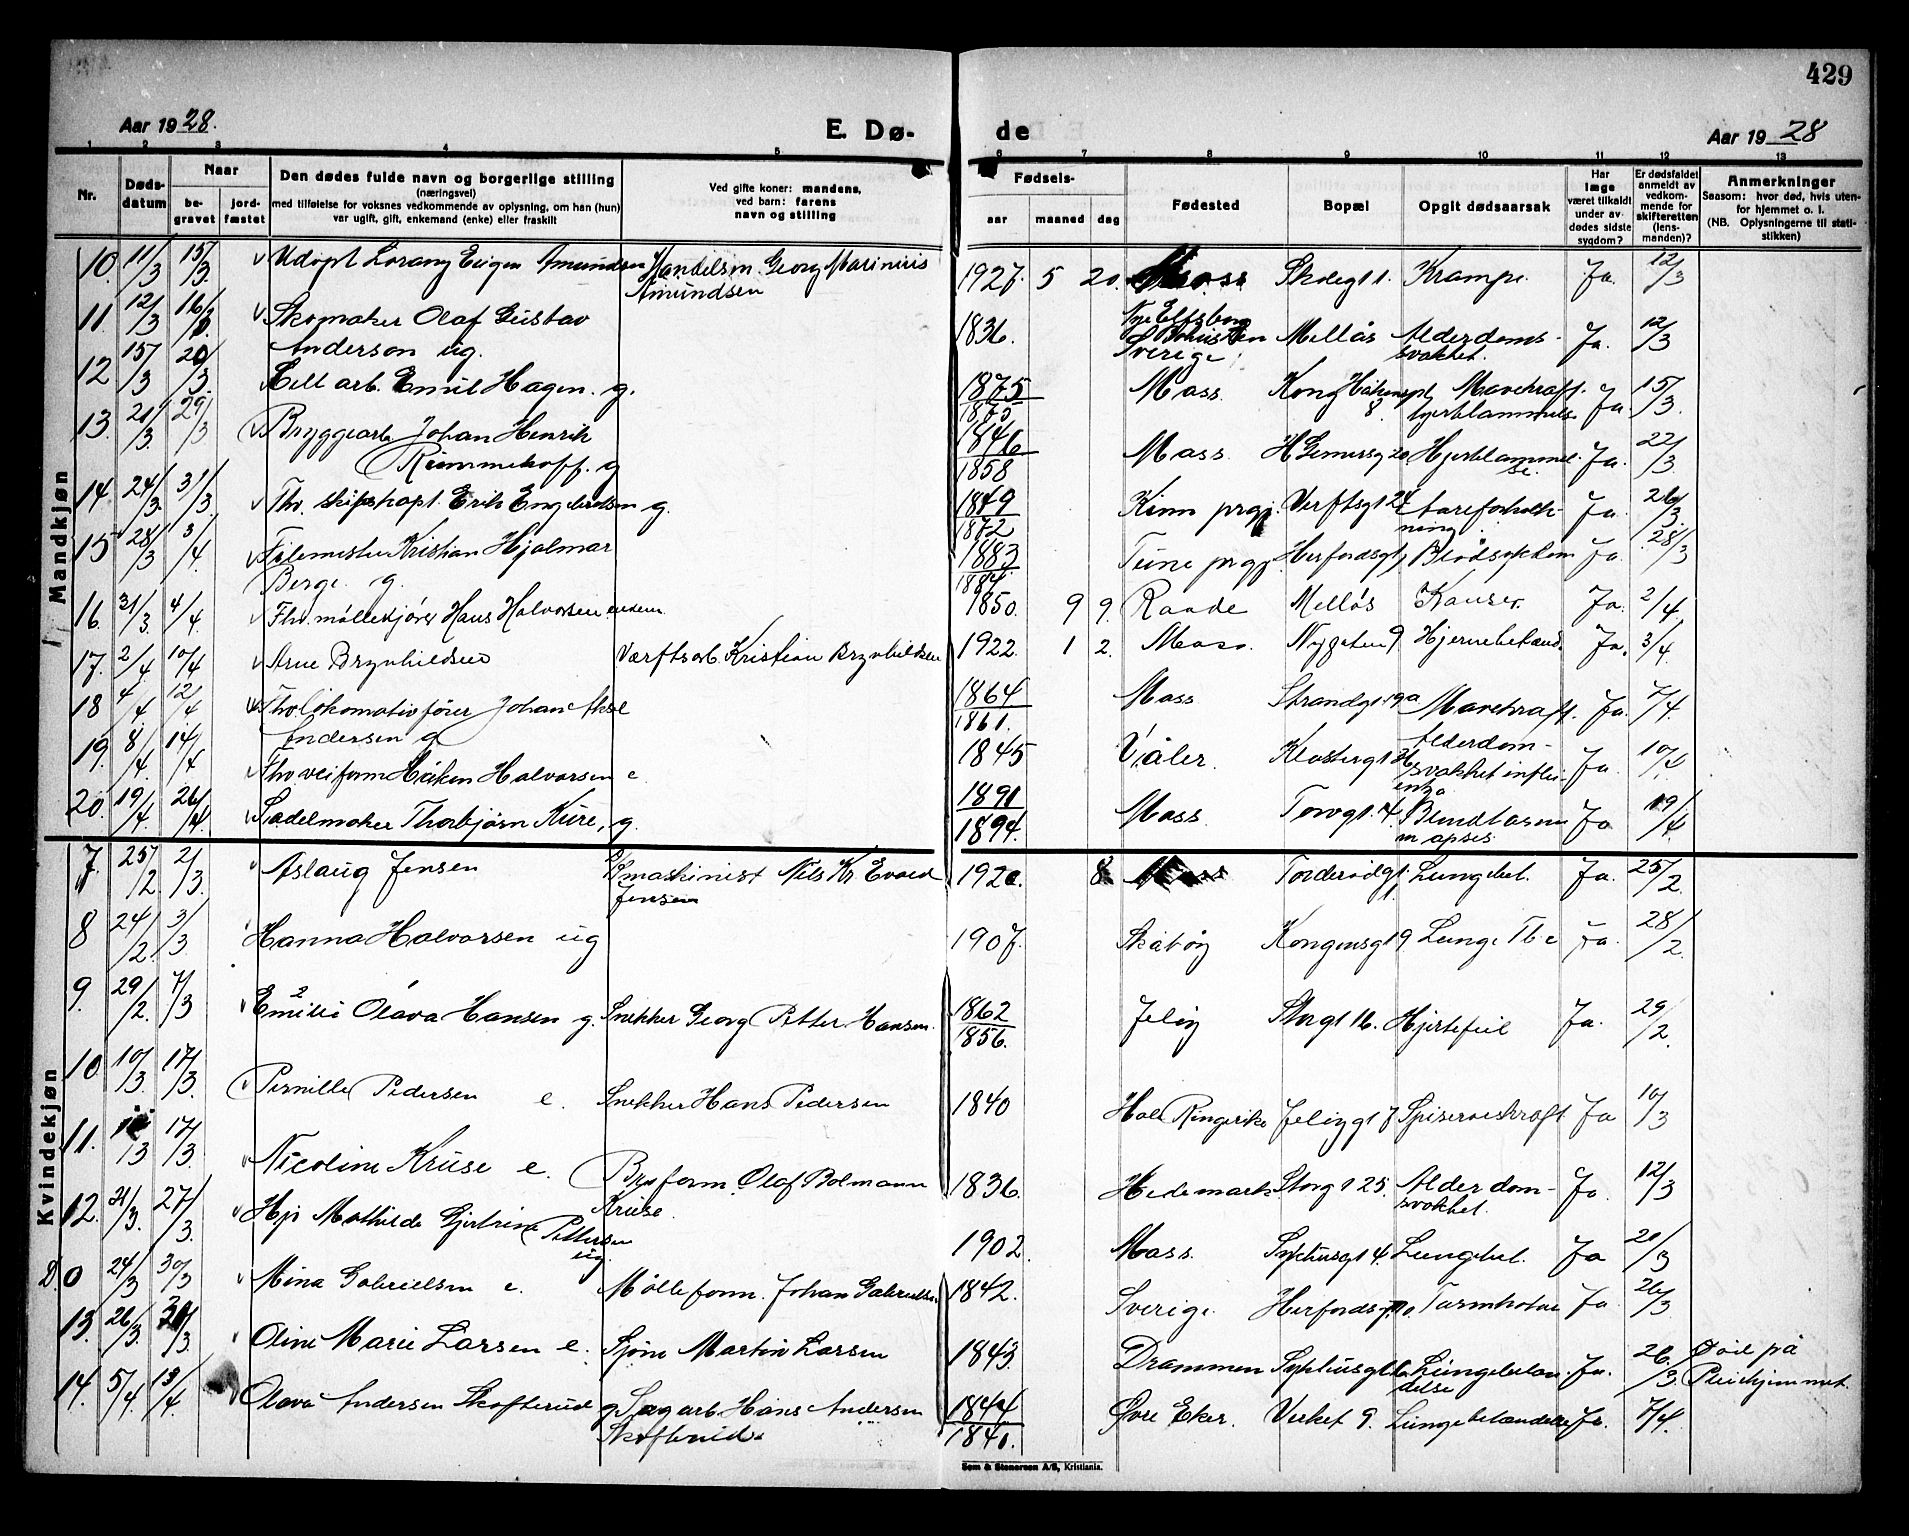 429
Aar 1928.
E. Dø-
de
Aar 1928
1 2 3 4 5 6 7 8 9 10 11 12 13
Nr.
Døds-
datum
Naar
be-
gravet
jord-
fæstet
Den dødes fulde navn og borgerlige stilling
(næringsvei)
med tilføielse for voksnes vedkommende av oplysning, om han (hun)
var ugift, gift, enkemand (enke) eller fraskilt
Ved gifte koner: mandens,
ved barn: farens
navn og stilling
Fødsels-
aar maaned dag
Fødested
Bopæl
Opgit dødsaarsak
Har
læge
været tilkaldt
under av-
dødes sidste
sygdom?
Er dødsfaldet
anmeldt av
vedkom-
mende for
skifteretten
(lens-
manden)?
Anmerkninger
Saasom: hvor død, hvis uten-
for hjemmet o. l.
(NB. Oplysningerne til stati-
stikken)
Mandkjøn
10. 11/3 15/3. Adopt Lorang Eugen Amundsen Handelsm. Georg Marinius
Amundsen 1927. 5 20. Moss Skolegt 1. Krampe. Ja. 12/3
11. 12/3 16/3 Skomaker Olaf Gustav
Anderson ug. 1836. Nye Elfsborg
Sverige. Melløs Alderdoms-
svakket. Ja. 12/3
12 15/3 20/3. arb. Emil Hagen. g. 1875
1875 Moss. Kong Håkonspl
8. Mavekræft.
Ja. 15/3.
13. 21/3. 29/3 Bryggearb Johan Henrik
Rimmehoff. g 1846
1858 Moss. H Gernersg 20 Hjerteslammel-
se. Ja. 22/3
14 24/3. 31/3. Fhv. skipskapt. Erik Engebretsen g. 1849
1872 Kinn prgj. Verftsgt 24 Aareforkalk-
ning. Ja. 26/3
15 28/3 3/4. Filemester Kristian Hjalmar
Berge. g. 1883
1884. Tune prgj. Herfordsgt Ja 28/3
16. 31/3. 4/4. Fhv. møllekjører Hans Halvorsen enkem. 1850. 9 9. Raade Melløs Kanser. Ja. 2/4
17. 2/4 10/4 Arne Brynhildsen Værftsarb. Kristian Brynhildsen 1922. 1 2. Moss. Nygaten 9 Hjernebetænd. Ja. 3/4.
18 4/4 12/4 Fhv. lokomotivfører Johan Aksel
Andersen g 1864
1861. Moss Strandgt. 19a Mavekræft. Ja. 7/4.
19. 8/4. 14/4 Fhv. veiform Håken Halvorsen e 1845 Våler. Klostergt Alderdom-
svakket influ-
enza Ja. 10/4.
20. 19/4. 26/4. Sadelmaker Thorbjørn Kure, g. 1891
1894. Moss. Torvgt. 4. Blindtarm
m apses. Ja 19/4
Kvindekjøn
7. 25/2. 2/3. Aslaug Jensen maskinist Nils Kr. Evald
Jensen 1920. 8 Moss Torderødgt. Lungebet. Ja. 25/2.
8 24/2. 3/3 Hanna Halvorsen ug 1907. Skåtøy Kongensgt 9 Lunge Tb.c Ja. 28/2.
9. 29/2. 7/3 Emilie Olava Hansen g. Snekker Georg Petter Hansen. 1862
1856. Jeløy Storgt 16. Hjertefeil Ja. 29/2.
10 10/3. 17/3. Pernille Pedersen e. Snekker Hans Pedersen 1840 Hole Ringerike Jeløygt 7 Spiserørskræft Ja 10/3
11. 11/3 17/3. Nicoline Kruse e. Byform. Olaf Bolmann
Kruse. 1836. Hedemark. Storgt 25. Alderdom-
svakket. Ja. 12/3
12. 21/3. 27/3. Hjp Mathilde Gjertrine Pettersen
ug. 1902. Moss. Sykhusgt 4. Lungebet. Ja 21/3
D. 0 24/3 30/3 Mina Gabrielsen e. Mølleform. Johan Gabrielsen 1842. Sverige. Herfordsgt Ja 26/3
13. 26/3. 30/3 Oline Marie Larsen e. Sjøm Martin Larsen 1843. Drammen Sykhusgt Lungebetæn
delse Ja. 26/3. Død på
Pleiehjemmet.
14. 5/4. 13/4 Olava Andersen Skofterud g. Sagarb. Hans Andersen
Skofterud. 1844
1840. Øvre Eker. Verket 9. Lungebetændelse Ja. 7/4.
Sem & Stenersen A/S, Kristiania.